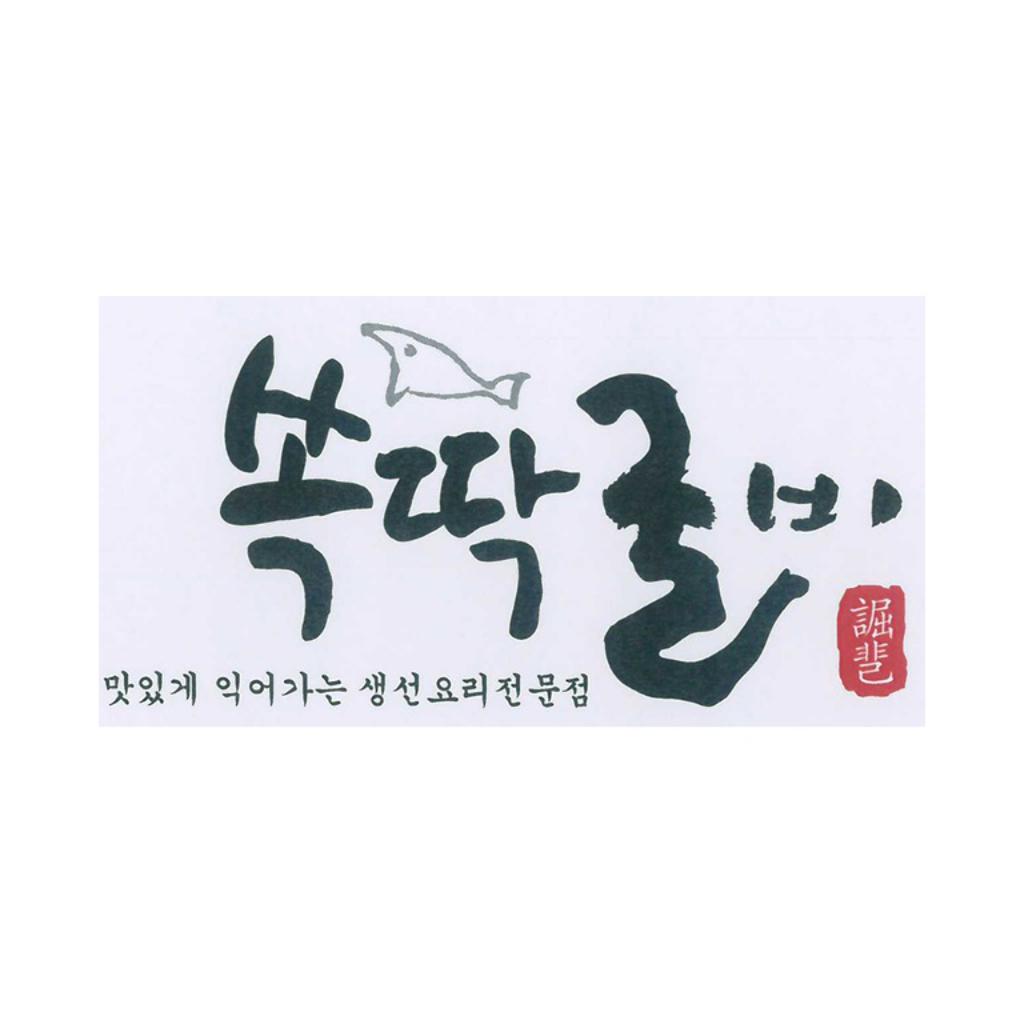 쏙딱굴비
맛있게 익어가는 생선요리전문점